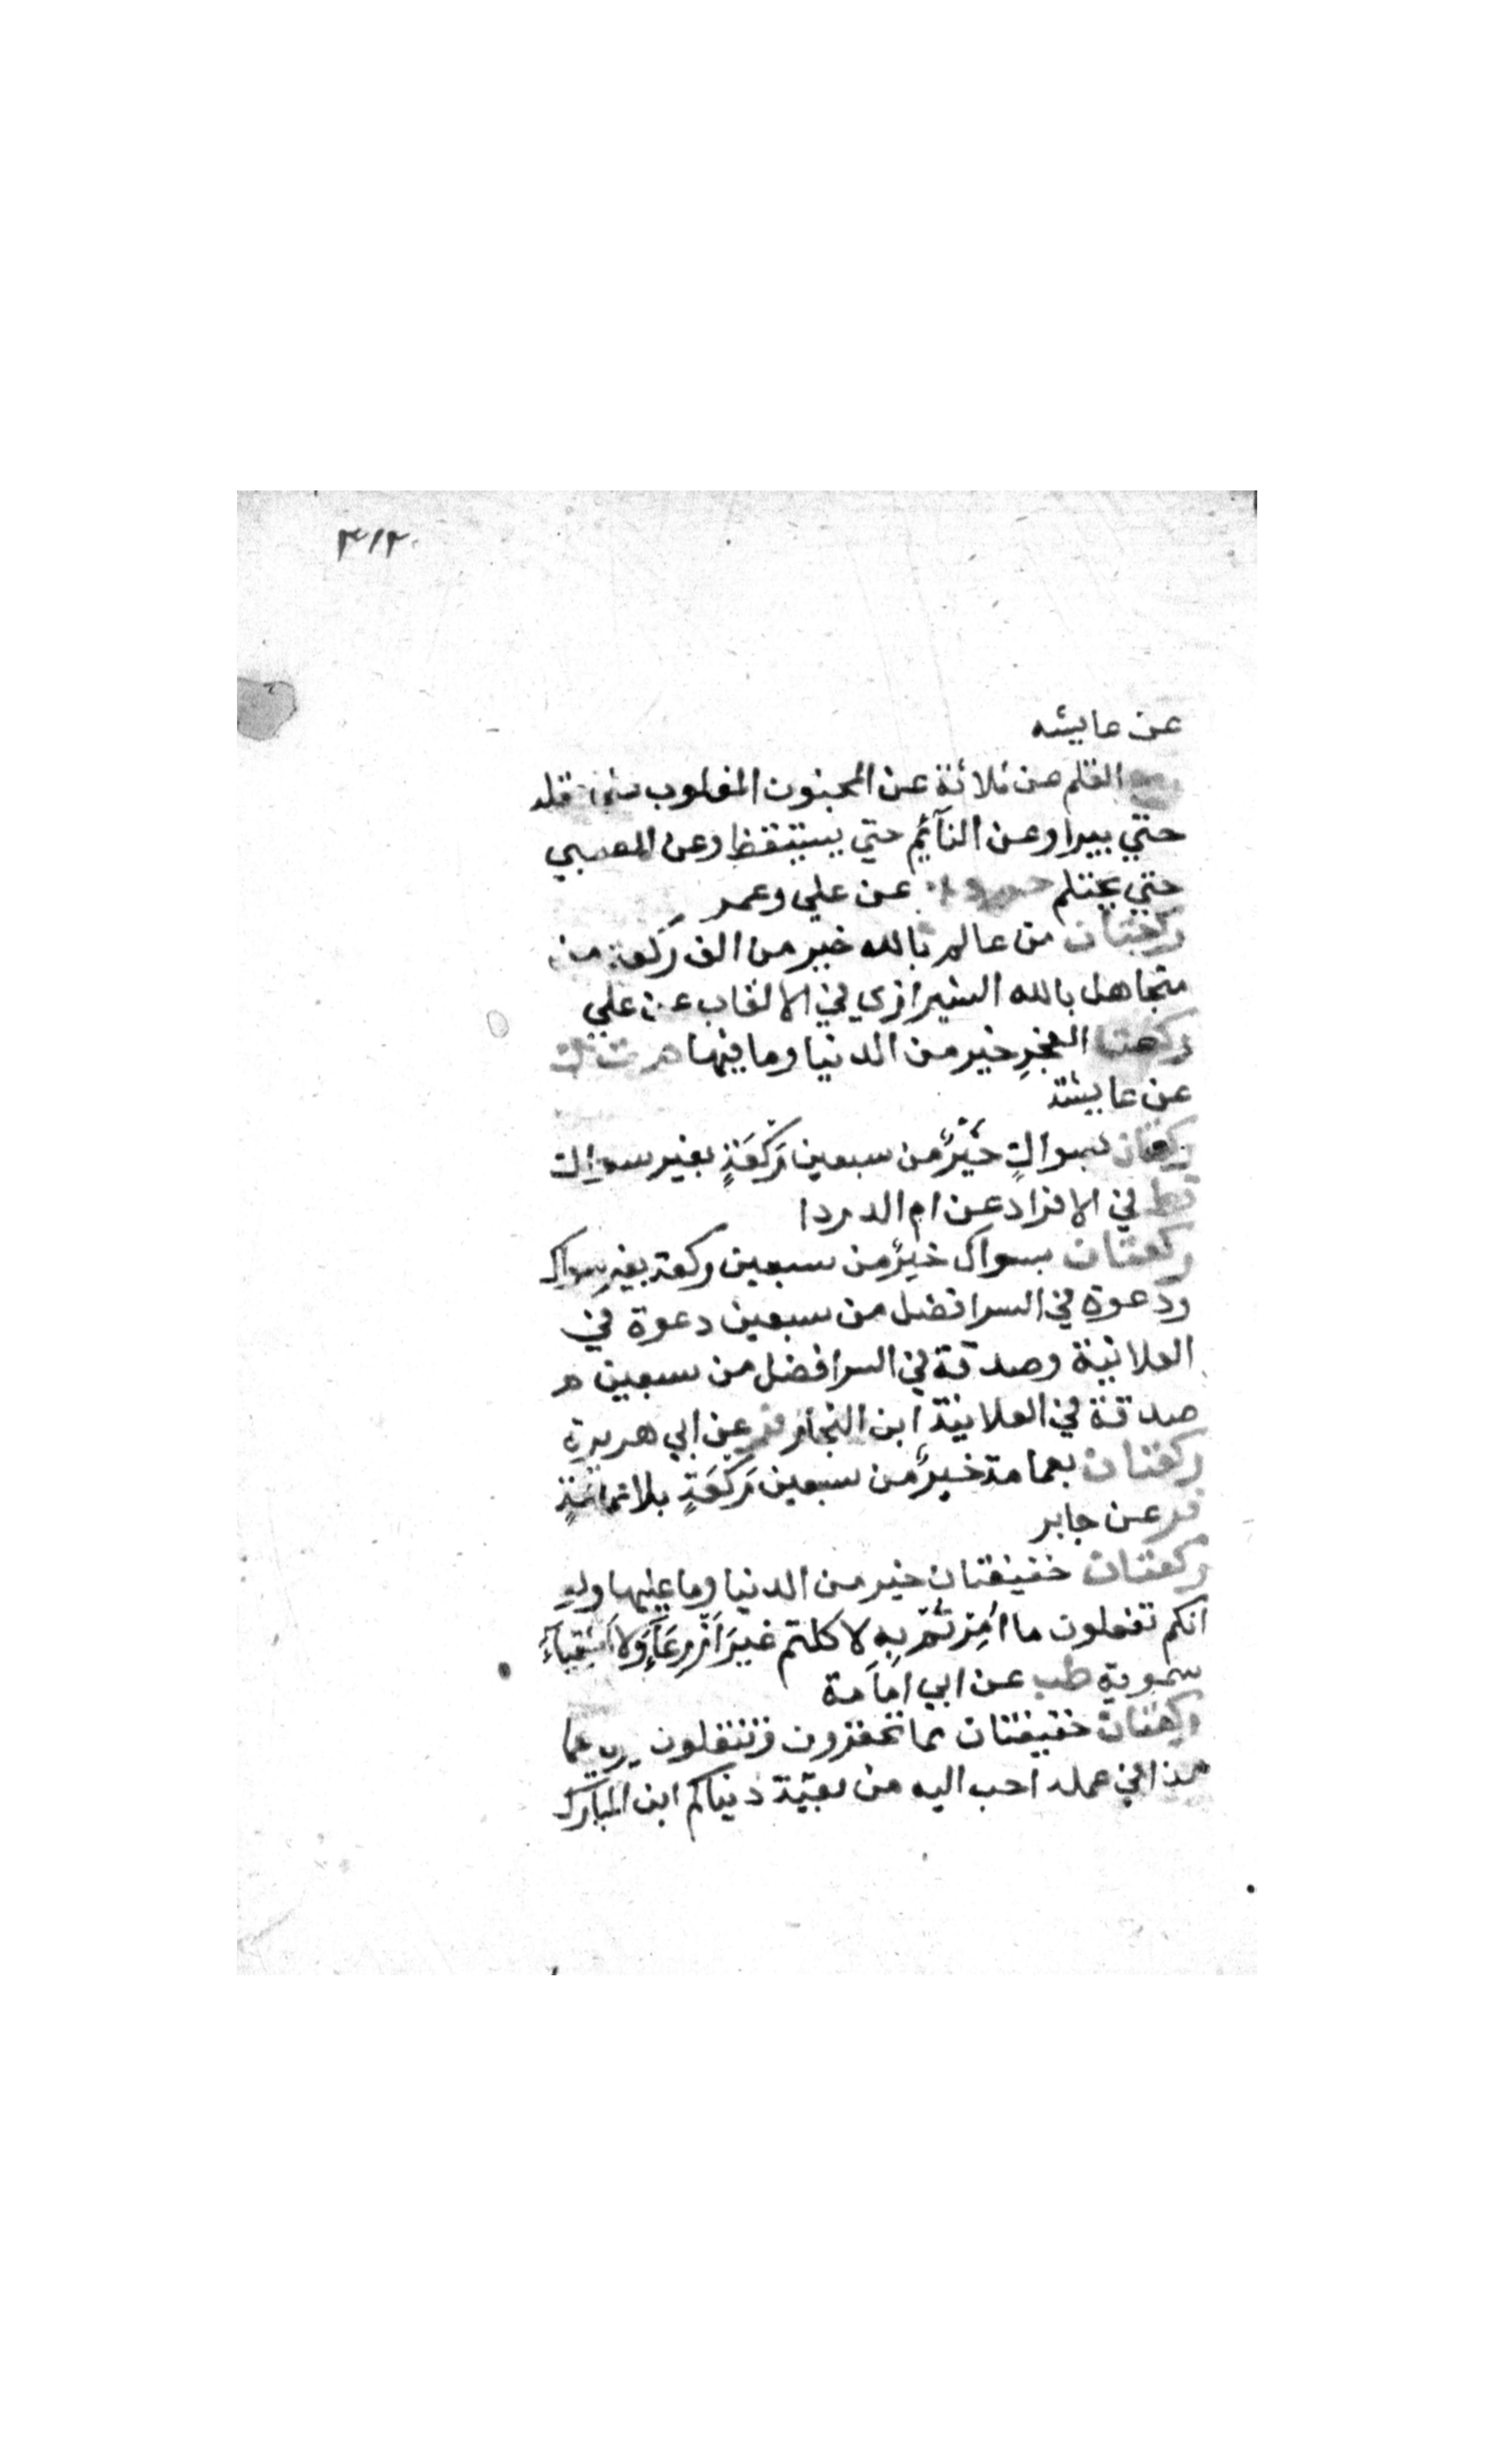 ٣١٢
عن عايشه
القلم عن ثلاثة عن المجنون المغلوب عقله
حتي يبرا وعن النآئم حتي يستيقظ وعن الصبي
حتي يحتلم عن علي وعمر
ركعتان من عالم بالله خير من الف ركعة من
متجاهل بالله الشيرازي في الالقاب عن علي
ركعتا الفجرِ خير من الدنيا وما فيها م ت ن
عن عايشة
ركعتان بسواكٍ خَيْرٌ من سبعين رَكعَةٍ بغير سواك
قط في الافراد عن ام الدردا
ركعتان بسواك خيرٌ من سبعين ركعة بغير سواك
ودعوة في السر افضل من سبعين دعوة في
العلانية وصدقة في السر افضل من سبعين
صدقة في العلانية ابن النجار فر عن ابي هريرة
ركعتان بعمامة خيرٌ من سبعين رَكعَةٍ بلا عمامَةٍ
فر عن جابر
ركعتان خفيفتان خير من الدنيا وما عليها ولو
انكم تفعلون ما اُمِرْتُمْ بِهِ لاكلتم غيرَ اَذْرِعَآءَ وَلاَ اَشْقِيآءَ
سموية طب عن ابي امامة
ركعتان خفيفتان مما تحقرون وتنفلون
هذا في عمله احب اليه من بقيّة دنياكم ابن المبارك